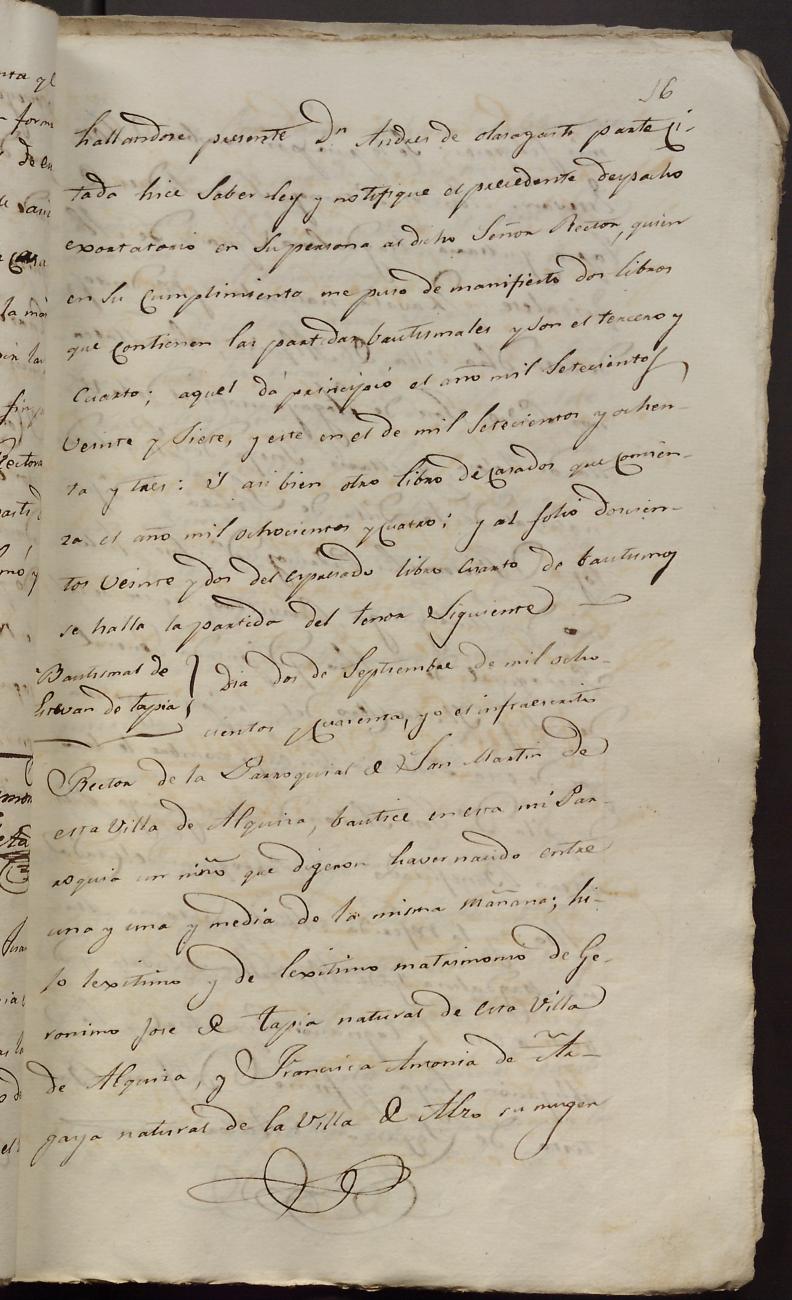 16
hallandose presente Dn Andres de olasagasti parte ci-
tada hice Saber ley y notifique el precedente despacho
exortatorio en Su persona al dicho Señor Rector, quien
en Su Cumplimiento me puso de manifiesto dos libros
que contienen las partidas bautismales y son el tercero y
Cuarto; aquel dá principio el año mil Setecientos
Veinte y Siete, y este en el de mil Setecientos y ochen-
ta y tres: Y asi bien otro libro de casados que comien-
za el año mil ochocientos y cuatro; y al folio doscien-
tos Veinte y dos del expresado libro Cuarto de bautismos
se halla la partida del tenor Siguiente
Bautismal de
Estevan de tapia
Dia dos de Septiembre de mil ocho-
cientos y Cuarenta, yo el infraescrito
Rector de la Parroquial de San Martin de
esta Villa de Alquiza, bautice en esta mi Par-
roquia un niño que digeron haver nacido entre
una y una y media de la misma mañana; hi-
jo lexitimo y de lexitimo matrimonio de Ge-
ronimo Jose de tapia natural de esta Villa
de Alquiza, y Francisca Antonia de
natural de la Villa de Alzo su muger